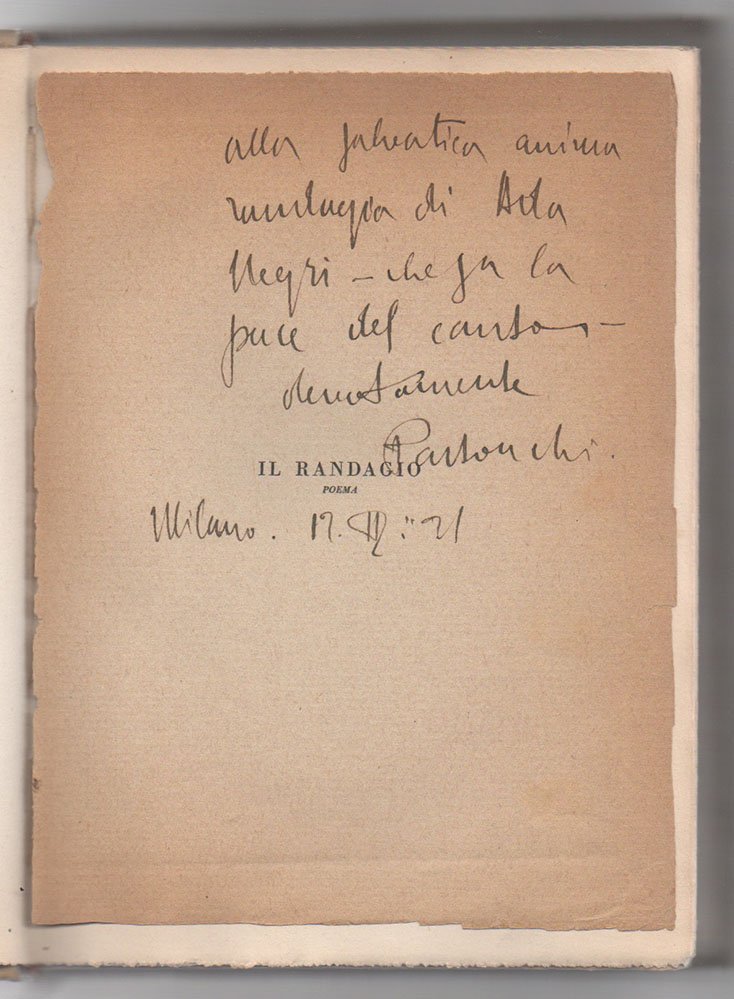 alla selvatica anima
randagia di Ada
Negri – che sa la
pace del canto –
devotamente
Pastonchi.
IL RANDAGIO
POEMA
Milano. 12. 21